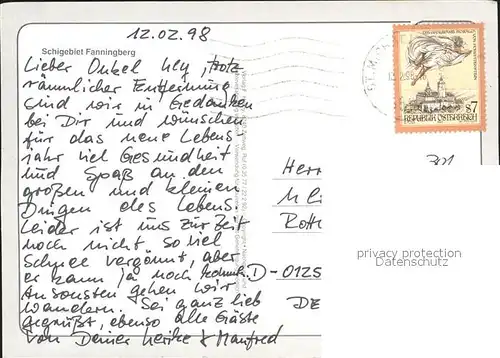 12.02.98
Schigebiet Fanningberg
Lieber Onkel Uly, trotz
räumlicher Entfernung
sind wir in Gedanken
bei Dir und wünschen
für das neue Lebens
jahr viel Gesundheit
und Spaß an den
großen und kleinen
Dingen des Lebens.
Leider ist uns zur Zeit
noch nicht so viel
Schnee vergönnt, aber
er kann ja noch kommen.
Ansonsten gehen wir
wandern. Sei ganz lieb
gegrüßt, ebenso alle Gäste
von Deiner Heike & Manfred
S7
REPUBLIK ÖSTERREICH
Herr
Rott
D-0125
DE
privacy protection
Datenschutz